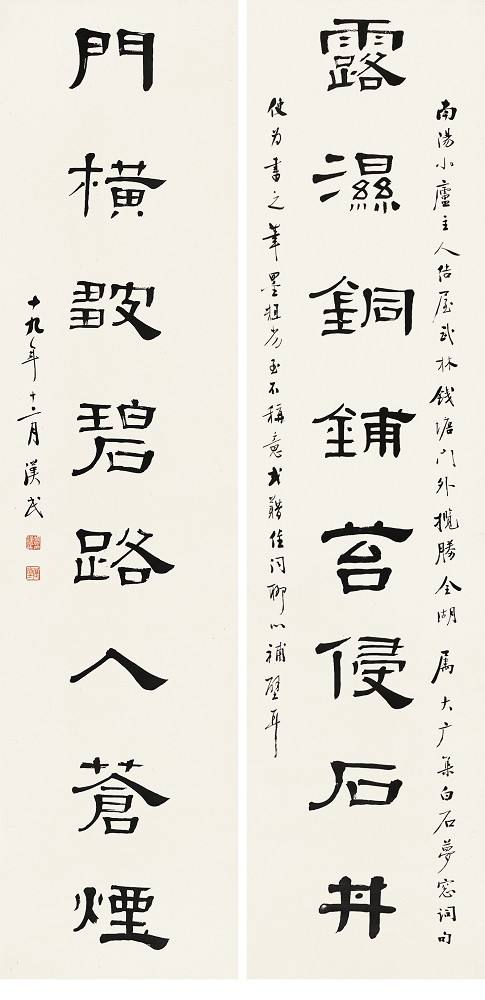 南陽小廬主人結屋武林錢塘門外攬勝全湖 屬大厂集白石夢窓詞句
露濕銅鋪苔侵石井
使為書之筆墨粗劣至不稱意或藉佳詞聊以補壁耳
門橫皺碧路入蒼煙
十九年十二月漢民